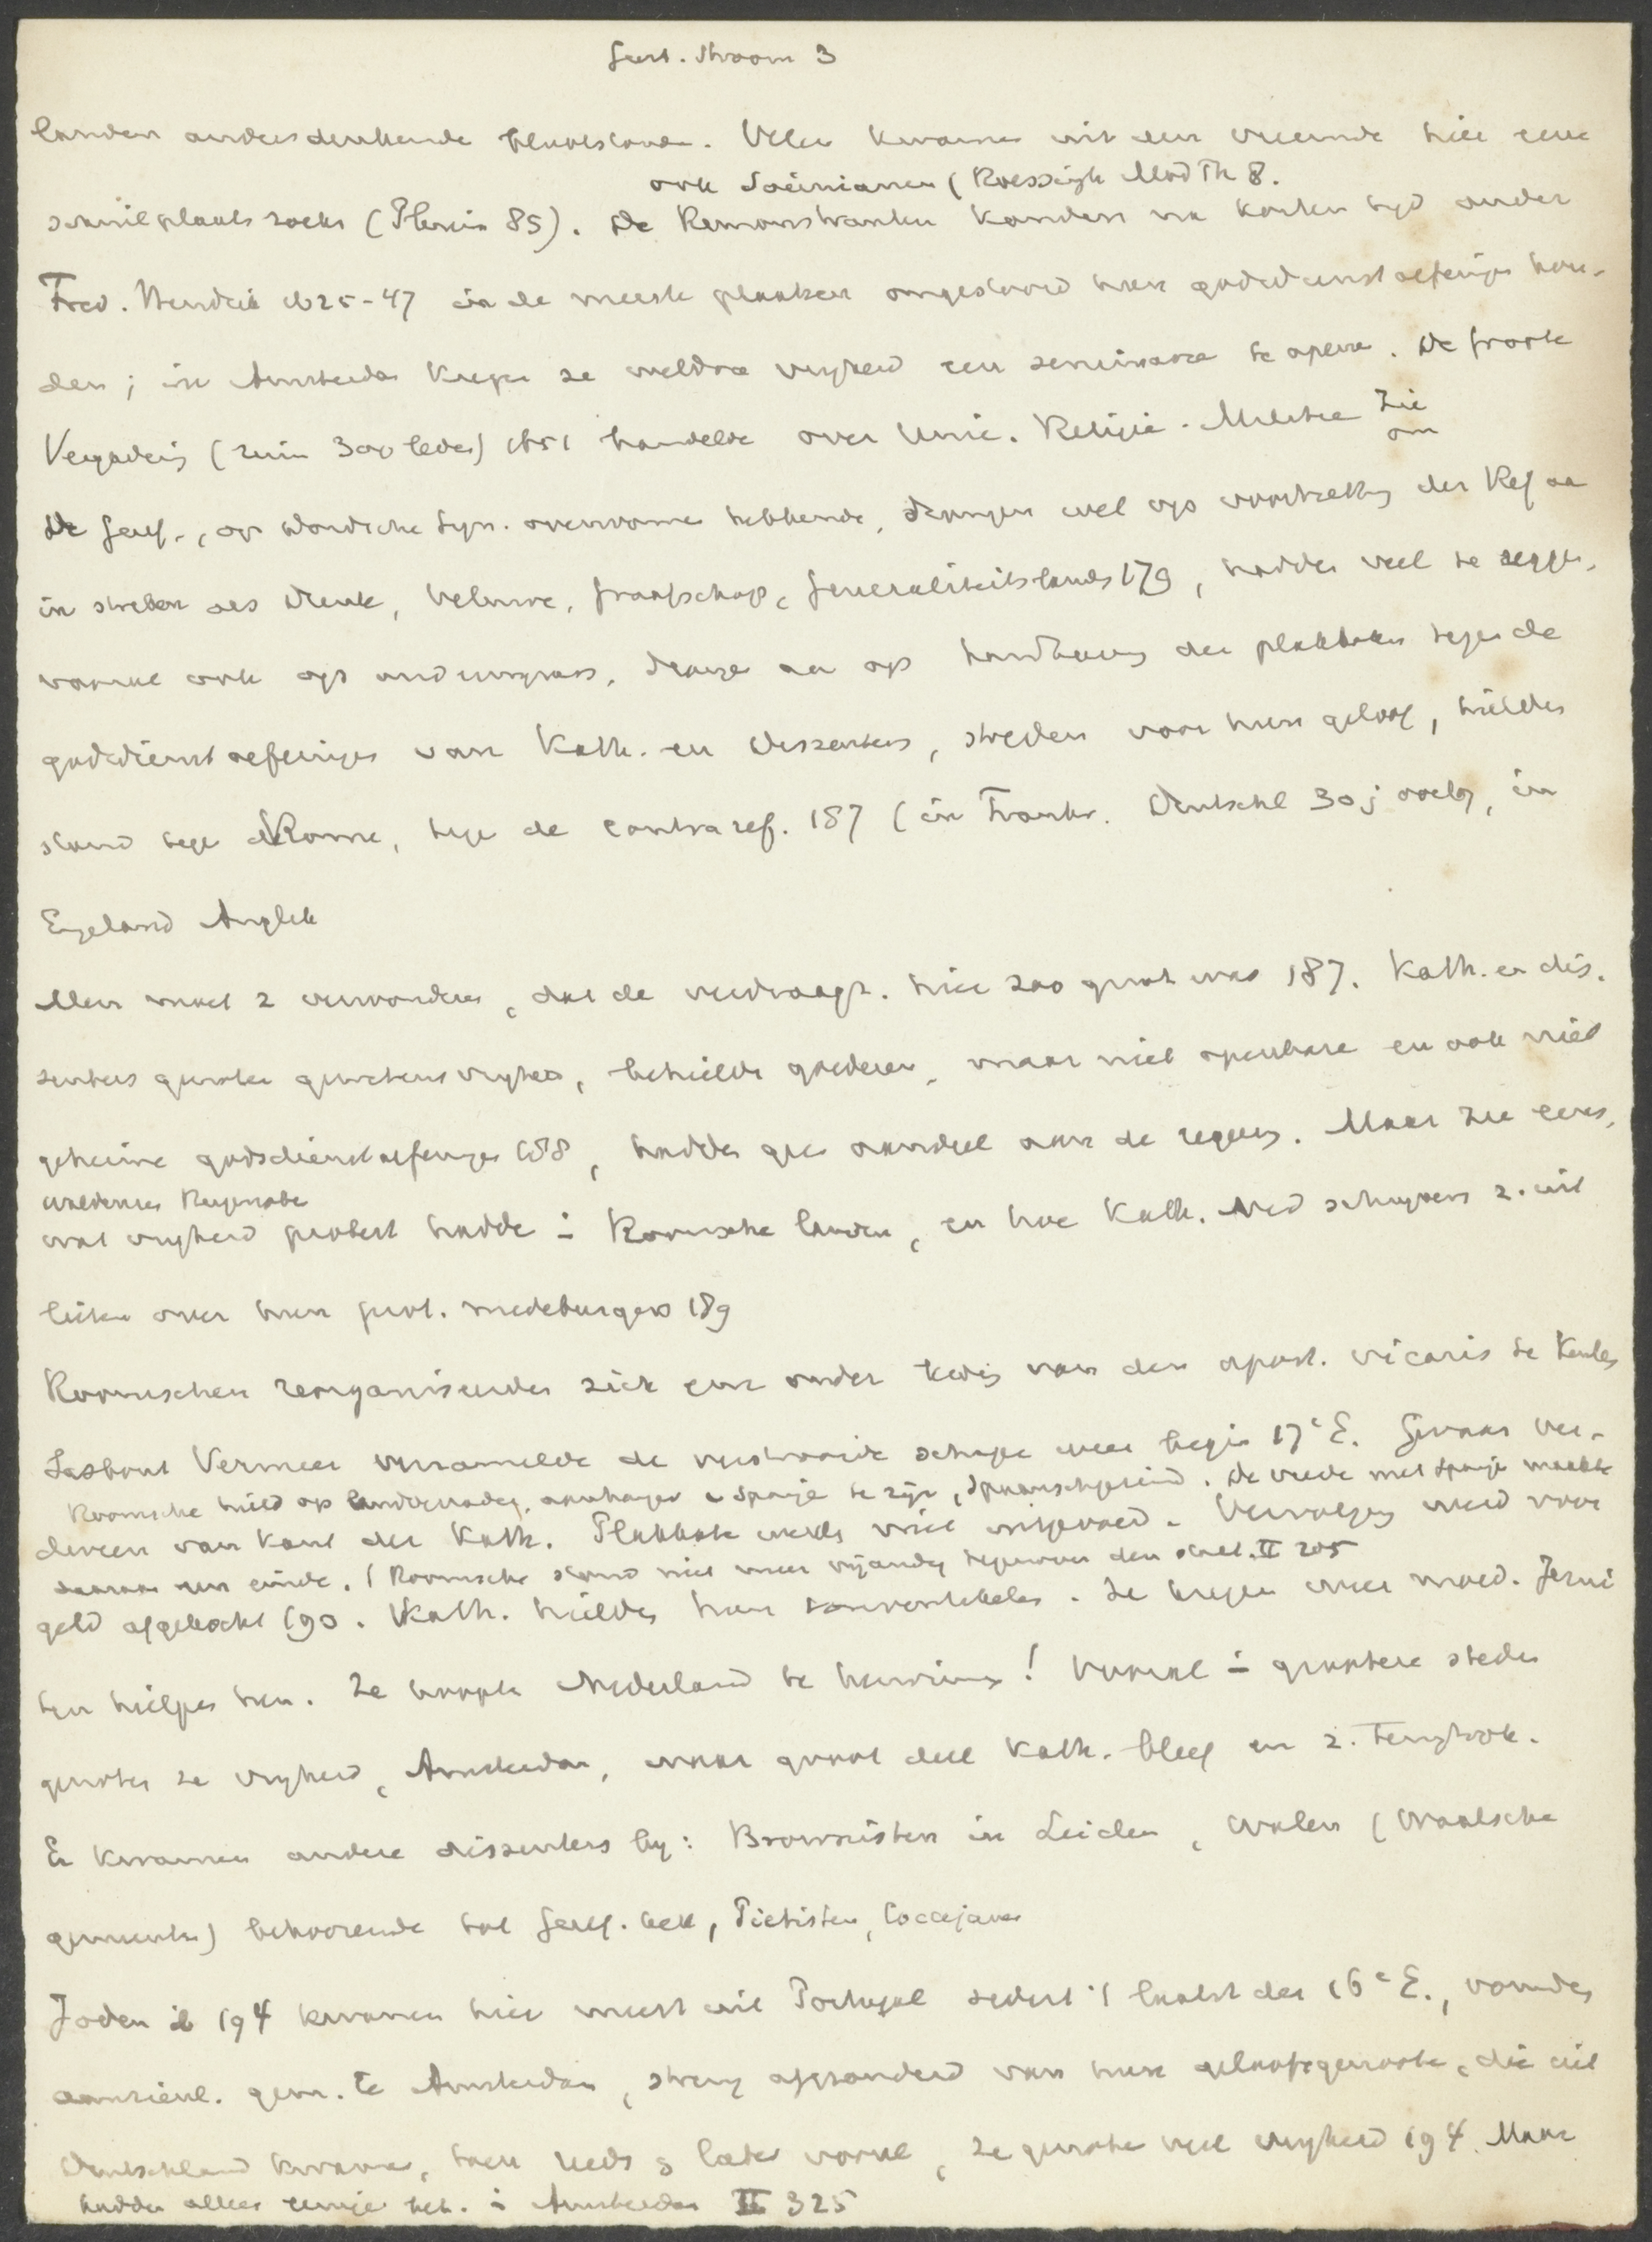 Geest. Stroom 3
landen andersdenkende blootstonden. Velen kwamen uit den vreemde hier eene
ook Socinianen (Roessingh Mod Th 8.
schuilplaats zoeken (Plenis 85). De Remonstranten konden na korten tijd onder
Fred. Hendrik 1625-47 in de meeste plaatsen ongestoord hun godsdienstoefeningen hou-
den; in Amsterdam kregen ze weldra vrijheid een seminarie te openen. De Groote
Vergadering (ruim 300 leden) 1651 handelde over Unie. Religie. Militie Zie
om
De Geref., op Dordtsche Syn. overwonnen hebbende, drongen wel op voortrekking der Ref aan
in streken als Drente, Veluwe, Graafschap, Generaliteitslanden 179, hadden veel te zeggen,
vooral ook op onderwijs, drongen aan op handhaving der plakkaten tegen de
godsdienstoefeningen van Kath. en Dissenters, streden voor hun geloof, hielden
stand tegen Rome, tegen de contraref. 187 (in Frankr. Duitschl 30 j oorlog, in
Engeland Anglik
Men moet z verwonderen, dat de verdraagz. hier zoo groot was 187. Kath. en dis-
senters genoten gewetensvrijheid, behielden goederen, maar niet openbare en ook niet
geheime godsdienstoefeningen 188, hadden geen aandeel aan de regeering. Maar zie eens,
Waldenzen
wat vrijheid protest hadden in Roomsche landen, en hoe Kath. Ned schrijvers z. uit
lieten over hun prot. medeburgers 189
Roomschen reorganiseerden zich eerst onder leiding van den apost. vicaris te Keulen
Sasbout Vermeer verzamelde de verstrooide schapen weer begin 17e E. Gevaar ver-
Roomsche hield op landverrader, aanhanger v Spanje te zijn, Spaanschgezind. De vrede met Spanje maakte
dween van kant der Kath. Plakkaten werden niet uitgevoerd. Vervolging werd voor
daaraan een einde. / Roomsche stond niet meer vijandig tegenover den staat. II 205
geld afgekocht 190. Kath. hielden hun conventikelen. Ze kregen weer moed. Jezuï
ten hielpen hen. Ze hoopten Nederland te herwinnen! Vooral in grootere steden
genoten ze vrijheid, Amsterdam, waar groot deel Kath. bleef en z. terugtrok.
Er kwamen andere dissenters bij: Brownisten in Leiden, Walen (Waalsche
gemeenten) behoorende tot Geref. kerk, Pietisten, Coccejanen
Joden 194 kwamen hier meest uit Portugal sedert 't laatst der 16e E., vormden
aanzienl. gem. te Amsterdam, streng afgezonderd van hun geloofsgenooten, die uit
Duitschland kwamen, toen reeds & later vooral, ze genoten veel vrijheid 194. Maar
hadden alleen in Amsterdam II 325